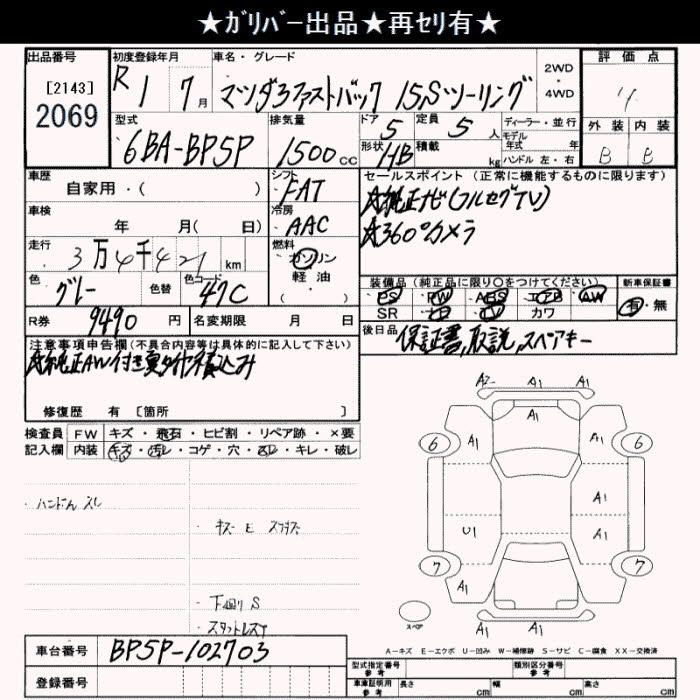 ★ガリバー出品★再セリ有★
出品番号 初度登録年月 車名・グレード 2WD・4WD 評価点
[2143]
2069
R1 7月 マツダ3ファストバック 15Sツーリング 4
型式 排気量 ドア 5 定員 5人 ディーラー・並行 外装 内装
6BA-BP5P 1500cc 形状 HB 積載 kg モデル年式 年 B B
ハンドル 左・右
車歴 シフト セールスポイント (正常に機能するものに限ります)
自家用・( ) FAT ☆純正ナビ(フルセグTV)
車検 冷房 ☆360°カメラ
年 月( 日) AAC
走行 燃料
3万4千421km ガソリン・軽油
( )
装備品(純正品に限り○をつけてください) 新車保証書
色 グレー 色替 色コード 47C
PS PW ABS エアB AW 有・無
SR ナビ TV カワ
R券 9490円 名変期限 月 日
後日品 保証書,取説,スペアキー
注意事項申告欄(不具合内容等は具体的に記入して下さい)
☆純正AW付き夏タイヤ積込み
修復歴 有 [箇所 ]
検査員 FW キズ・飛石・ヒビ割・リペア跡・×要
記入欄 内装 キズ・汚レ・コゲ・穴・スレ・キレ・破レ
・ハンドルスレ
・キズ E
・下廻りS
A2 A1 A1
A1
6 A1 A1 6
A1
U1 A1
7 A1 7
A1
スペア
A1
A-キズ E-エクボ U-凹み W-補修跡 S-サビ C-腐食 XX-交換済
車台番号 BP5P-102703
登録番号
型式指定番号 参考 類別区分番号 参考
車庫証明用 参考 長さ cm 幅 cm 高さ cm